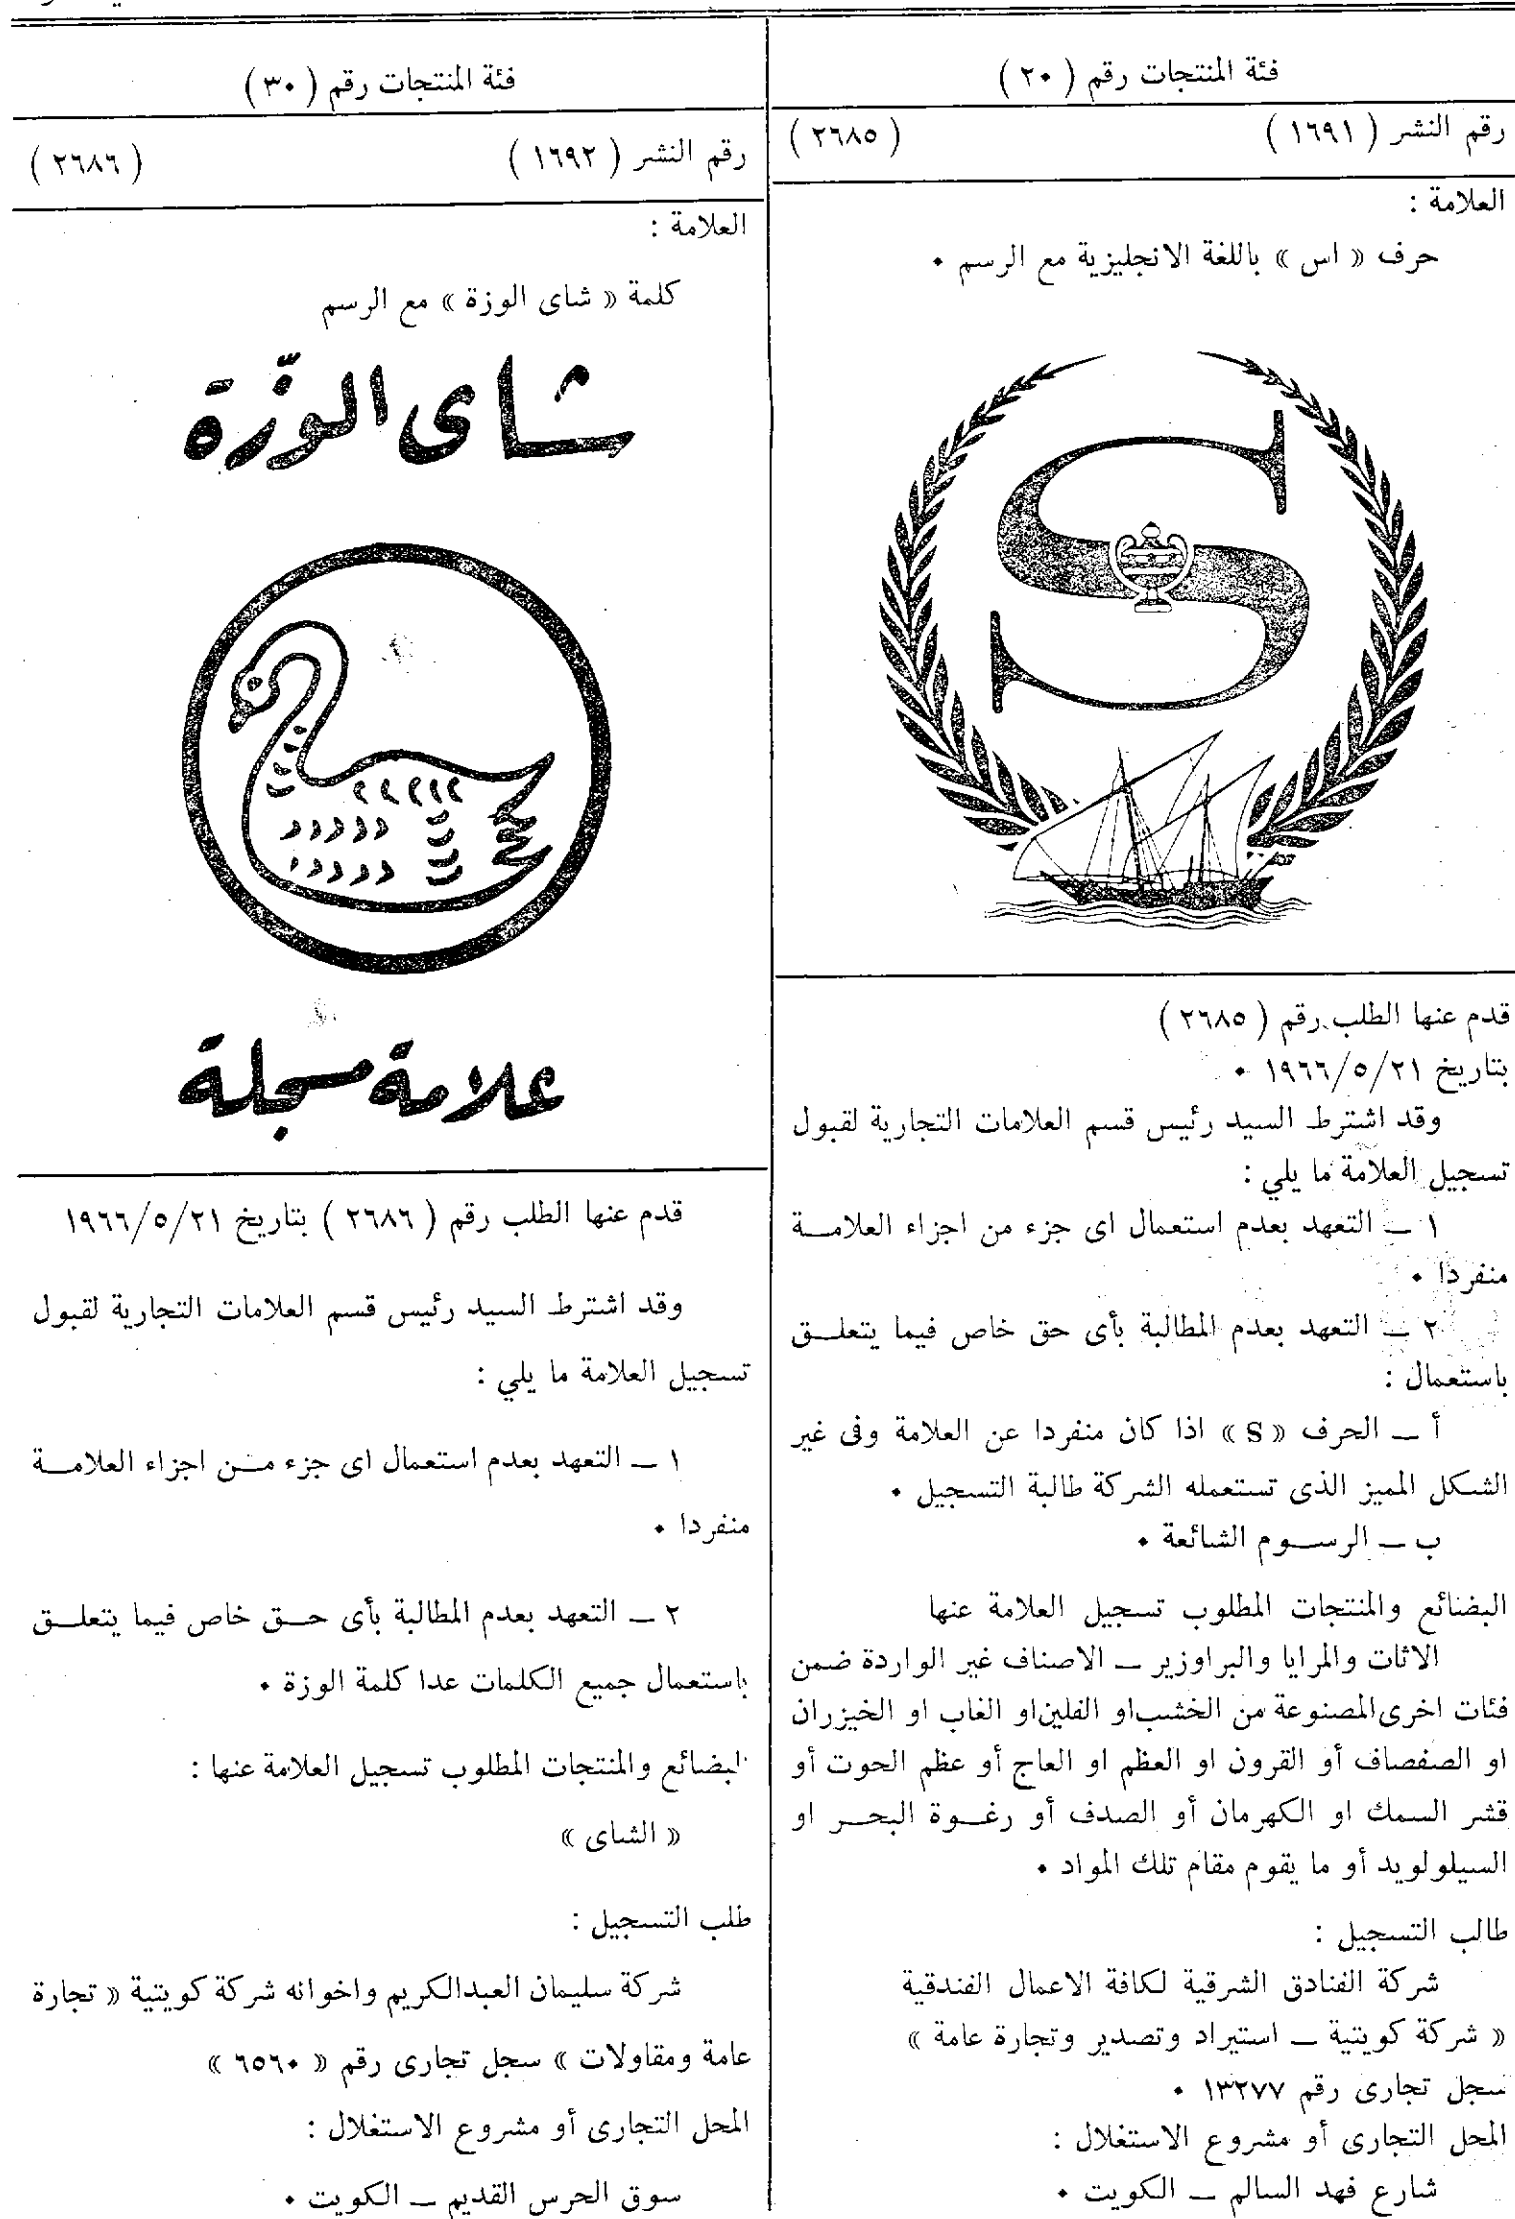 فئة المنتجات رقم ( ٢٠ )
رقم النشر ( ١٦٩١ ) ( ٢٦٨٥ )
العلامة :
حرف « اس » باللغة الانجليزية مع الرسم .
S
قدم عنها الطلب رقم ( ٢٦٨٥ )
بتاريخ ٢١/٥/١٩٦٦ .
وقد اشترط السيد رئيس قسم العلامات التجارية لقبول
تسجيل العلامة ما يلي :
١ — التعهد بعدم استعمال اى جزء من اجزاء العلامة
منفردا .
٢ — التعهد بعدم المطالبة بأى حق خاص فيما يتعلق
باستعمال :
أ — الحرف « S » اذا كان منفردا عن العلامة وفى غير
الشكل المميز الذى تستعمله الشركة طالبة التسجيل .
ب — الرسوم الشائعة .
البضائع والمنتجات المطلوب تسجيل العلامة عنها
الاثاث والمرايا والبراوزير — الاصناف غير الواردة ضمن
فئات اخرى المصنوعة من الخشب او الفلين او الغاب او الخيزران
او الصفصاف أو القرون او العظم او العاج أو عظم الحوت أو
قشر السمك او الكهرمان أو الصدف أو رغوة البحر او
السيلولويد أو ما يقوم مقام تلك المواد .
طالب التسجيل :
شركة الفنادق الشرقية لكافة الاعمال الفندقية
« شركة كويتية — استيراد وتصدير وتجارة عامة »
سجل تجارى رقم ١٣٢٧٧ .
المحل التجارى أو مشروع الاستغلال :
شارع فهد السالم — الكويت .
فئة المنتجات رقم ( ٣٠ )
رقم النشر ( ١٦٩٢ ) ( ٢٦٨٦ )
العلامة :
كلمة « شاى الوزة » مع الرسم
شاى الوزّة
علامة مسجلة
قدم عنها الطلب رقم ( ٢٦٨٦ ) بتاريخ ٢١/٥/١٩٦٦
وقد اشترط السيد رئيس قسم العلامات التجارية لقبول
تسجيل العلامة ما يلي :
١ — التعهد بعدم استعمال اى جزء من اجزاء العلامة
منفردا .
٢ — التعهد بعدم المطالبة بأى حق خاص فيما يتعلق
باستعمال جميع الكلمات عدا كلمة الوزة .
البضائع والمنتجات المطلوب تسجيل العلامة عنها :
« الشاى »
طلب التسجيل :
شركة سليمان العبدالكريم واخوانه شركة كويتية « تجارة
عامة ومقاولات » سجل تجارى رقم « ٦٥٦٠ »
المحل التجارى أو مشروع الاستغلال :
سوق الحرس القديم — الكويت .